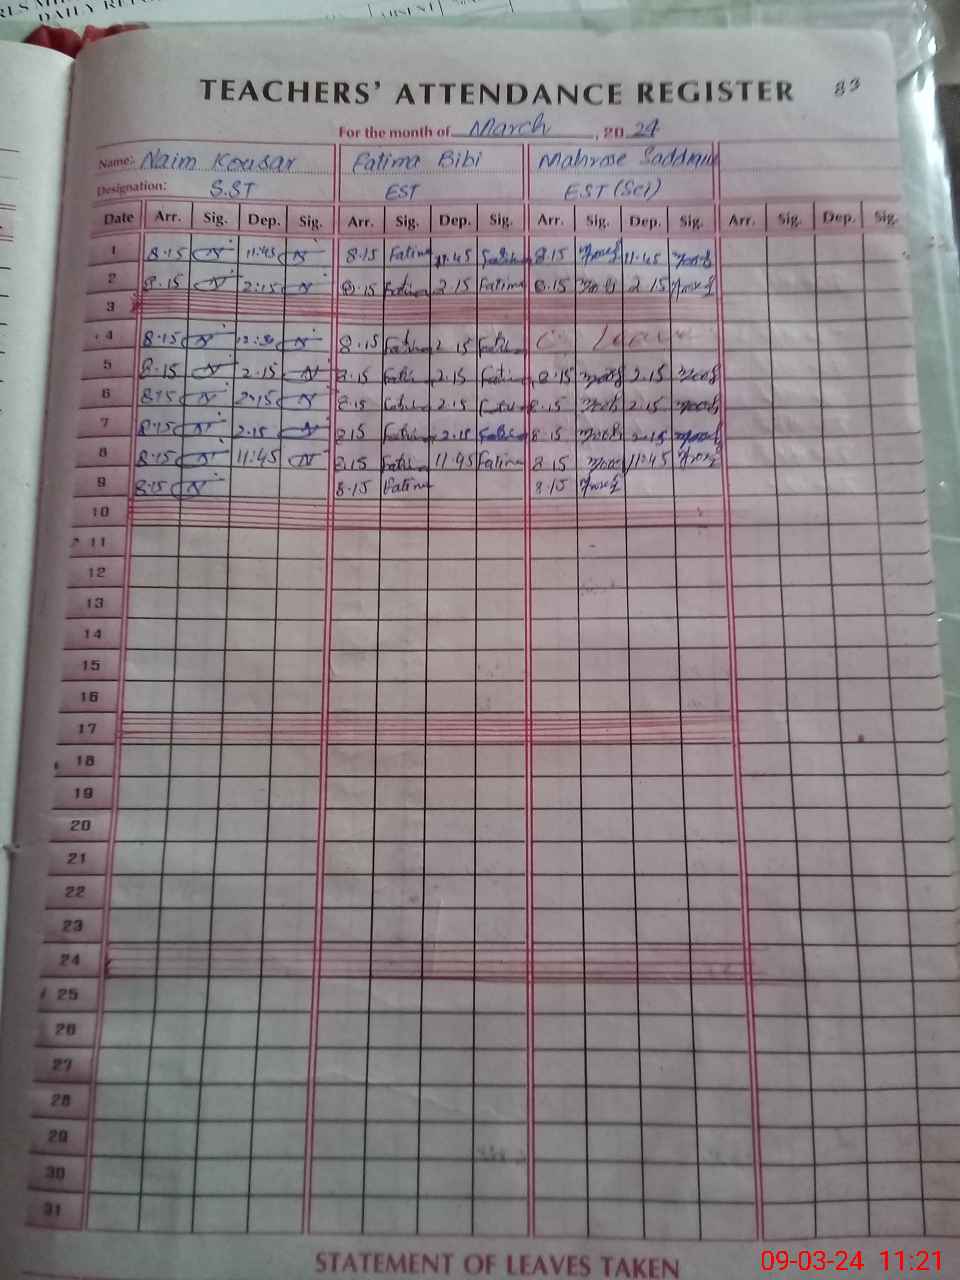 DAILY
TEACHERS' ATTENDANCE REGISTER 83
For the month of March, 2024
Name: Naim Kousar Fatima Bibi Mahrose
Designation: S.ST EST EST (Sci)
Date Arr. Sig. Dep. Sig. Arr. Sig. Dep. Sig. Arr. Sig. Dep. Sig. Arr. Sig. Dep. Sig.
1 8.15 N 11:45 N 8.15 Fatima 11.45 8.15 11.45
2 8.15 N 2:15 N 8.15 Fatima 2.15 Fatima 8.15 2.15
3
4 8.15 N 12:30 N 8.15 2.15 leave
5 8.15 N 2.15 N 8.15 2.15 8.15 2.15
6 8.15 N 2.15 N 8.15 2.15 8.15 2.15
7 8.15 N 2.15 N 8.15 2.15 8.15 2.15
8 8.15 N 11:45 N 8.15 11.45 Fatima 8.15 11.45
9 8.15 N 8.15 Fatima 8.15
10
11
12
13
14
15
16
17
18
19
20
21
22
23
24
25
26
27
28
29
30
31
STATEMENT OF LEAVES TAKEN
09-03-24 11:21